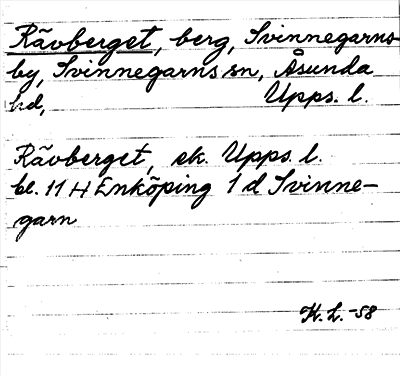 Rävberget, berg, Svinnegarns-
by, Svinnegarns sn, Åsunda
hd, Upps. l.
Rävberget, ek. Upps. l.
bl. 11 H Enköping 1 d Svinne-
garn
H. L. -58